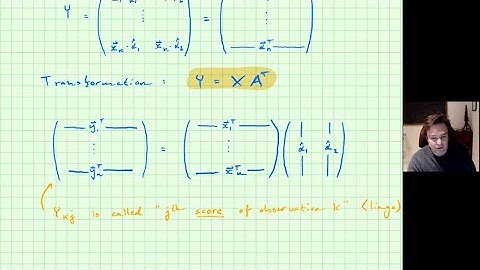 Y = ( ⋮ x⃗ₙ·α̂₁ x⃗ₙ·α̂₂ ) = ( ⋮ — α⃗ₙᵀ — )
Transformation : Y = X Aᵀ
( — y⃗₁ᵀ — ⋮ — y⃗ₙᵀ — ) = ( — x⃗₁ᵀ — ⋮ — x⃗ₙᵀ — ) ( α̂₁ α̂₂ )
Yₖⱼ is called "jᵗʰ score of observation k" (lingo)